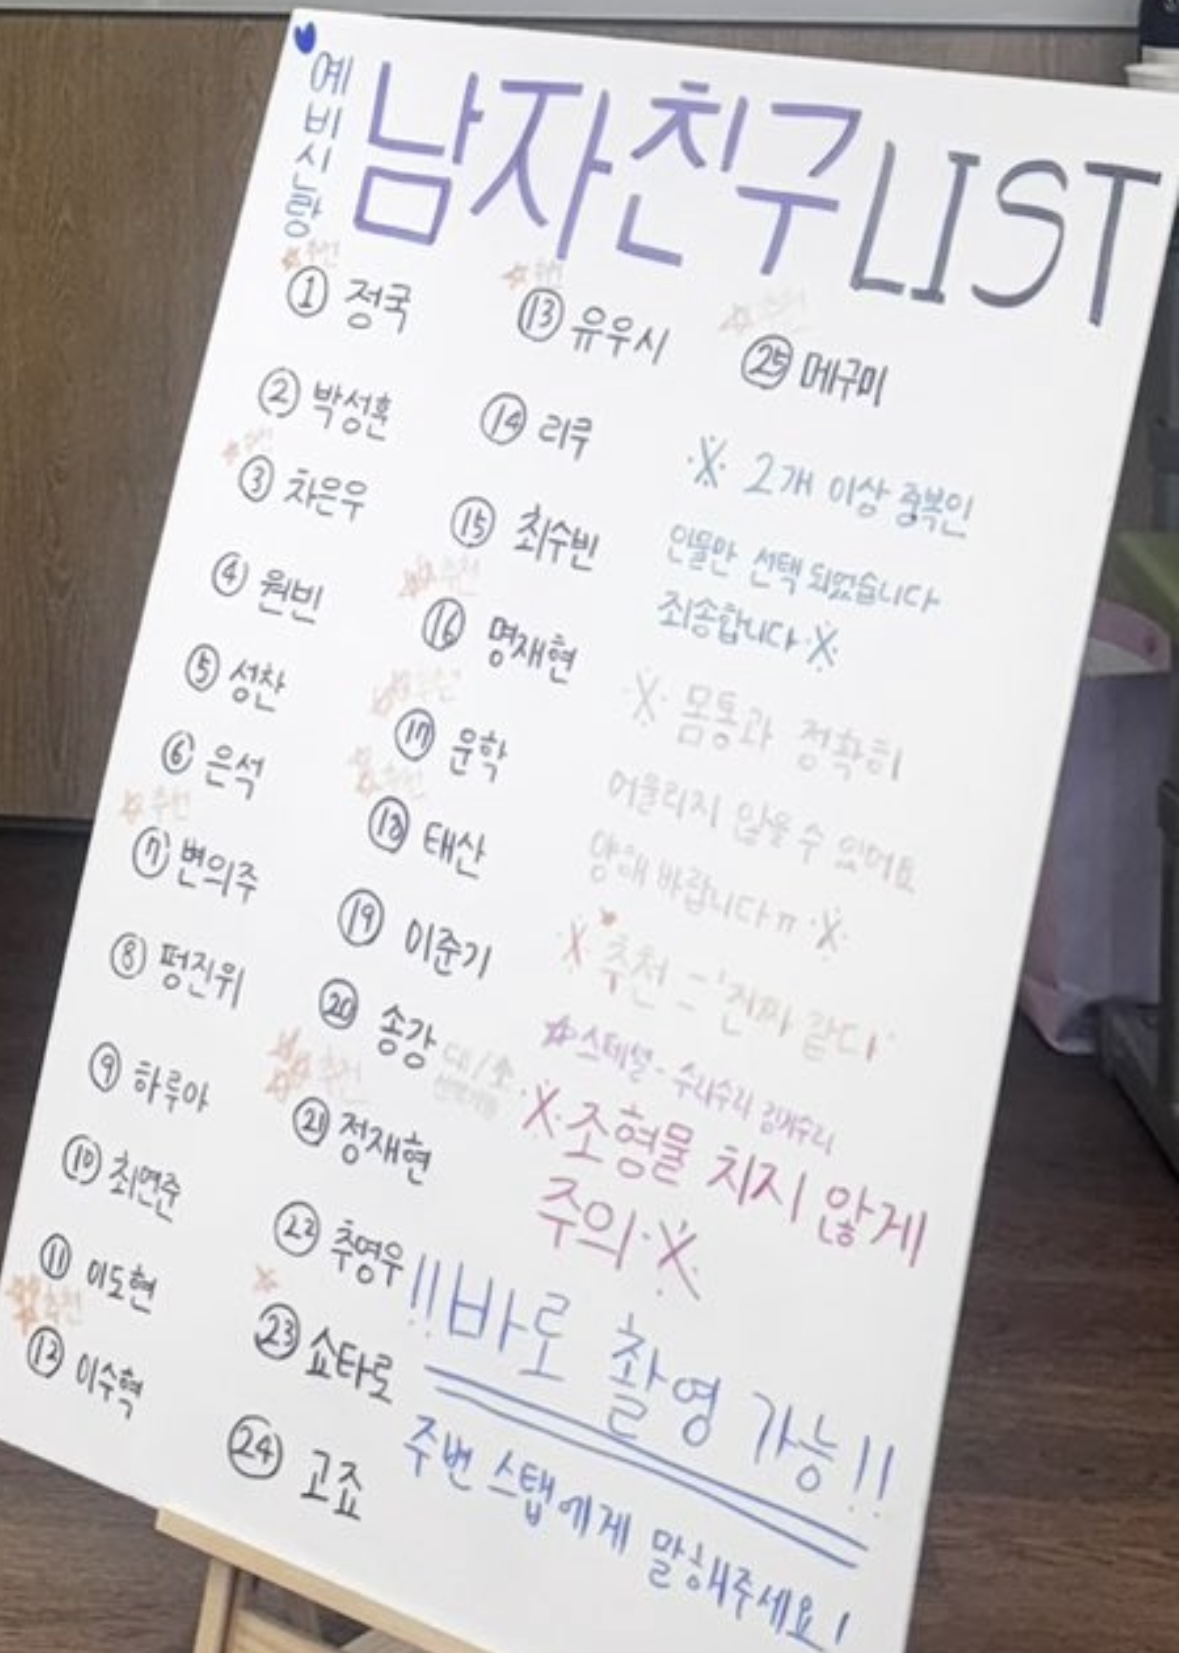 예비신랑
남자친구 LIST
추천
① 정국
② 박성훈
추천
③ 차은우
④ 원빈
⑤ 성찬
⑥ 은석
추천
⑦ 변의주
⑧ 펑진위
⑨ 하루아
⑩ 최연준
⑪ 이도현
추천
⑫ 이수혁
추천
⑬ 유우시
⑭ 리쿠
⑮ 최수빈
추천
⑯ 명재현
추천
⑰ 운학
추천
⑱ 태산
⑲ 이준기
⑳ 송강
추천
㉑ 정재현
㉒ 추영우
㉓ 쇼타로
㉔ 고죠
추천
㉕ 메구미
※ 2개 이상 중복인
인물만 선택 되었습니다
죄송합니다 ※
※ 몸통과 정확히
어울리지 않을 수 있어요
양해 바랍니다ㅠ ※
※ 추천 = '진짜 같다'
☆스페셜 - 수니수리 김개수리
※조형물 치지 않게
주의※
!!바로 촬영 가능!!
주변 스탭에게 말해주세요!